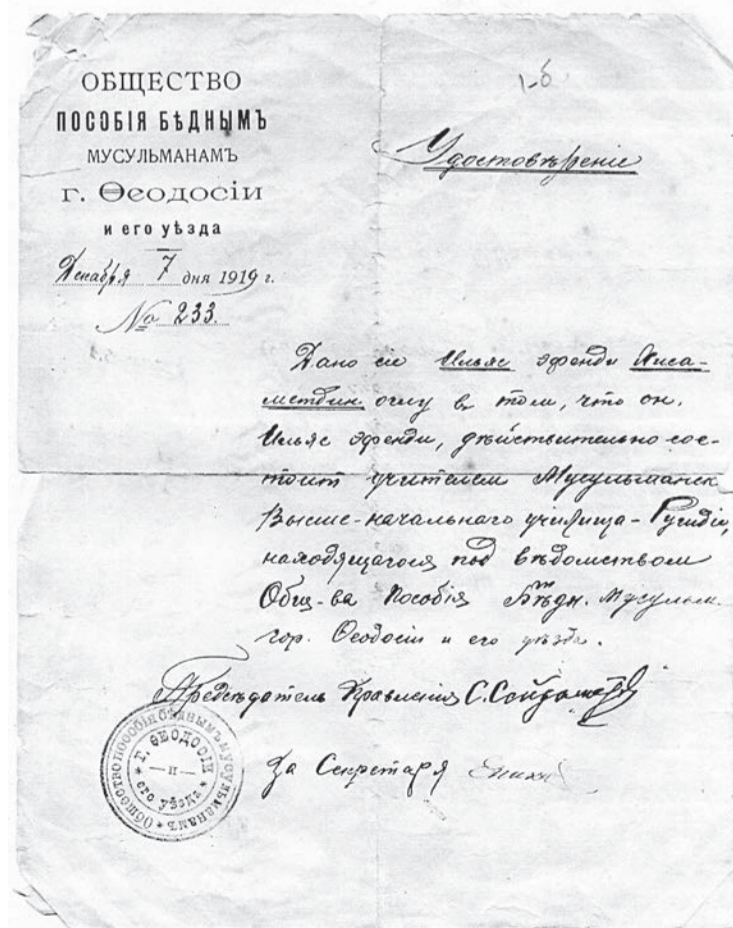 ОБЩЕСТВО
ПОСОБІЯ БѢДНЫМЪ
МУСУЛЬМАНАМЪ
г. Ѳеодосіи
и его уѣзда
Декабря 7 дня 1919 г.
№ 233.
1-б
Удостовѣреніе
Дано сіе Ильяс эфенди
оглу в том, что он.
Ильяс эфенди, дѣйствительно сос-
тоит учителем Мусульманск
Высше-начальнаго училища-Рушдіе,
находящагося под вѣдомством
Общ-ва Пособія Бѣдн. Мусульм.
гор. Ѳеодосіи и его уѣзда.
Предсѣдатель Правленія С.
За Секретаря
Общество пособія бѣднымъ мусульманамъ
г. ѲЕОДОСІИ
и
его уѣзда